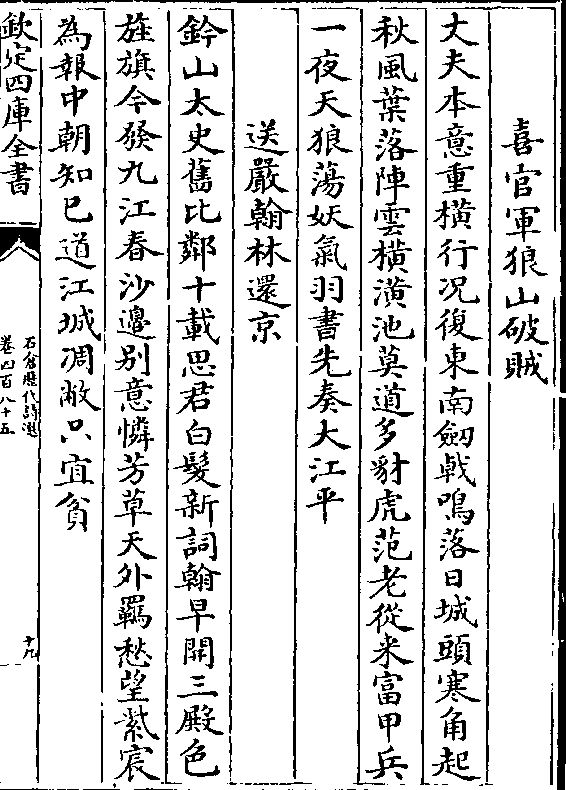 喜官軍狼山破賊
丈夫本意重橫行况復東南劒㦸鳴落日城頭寒角起
秋風葉落陣雲橫潢池莫道多豺虎范老從来富甲兵
一夜天狼蕩妖氣羽書先奏大江平
送嚴翰林還京
鈐山太史舊比鄰十載思君白髮新詞翰早開三殿色
旌旗今發九江春沙邊别意憐芳草天外羈愁望紫宸
為報中朝知已道江城凋敝只宜貧
欽定四庫全書
石倉歷代詩選
卷四百八十五
十九